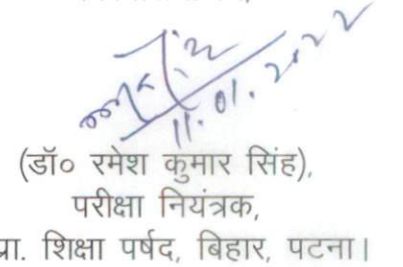 11.01.2022
(डॉ० रमेश कुमार सिंह),
परीक्षा नियंत्रक,
प्रा. शिक्षा पर्षद, बिहार, पटना।